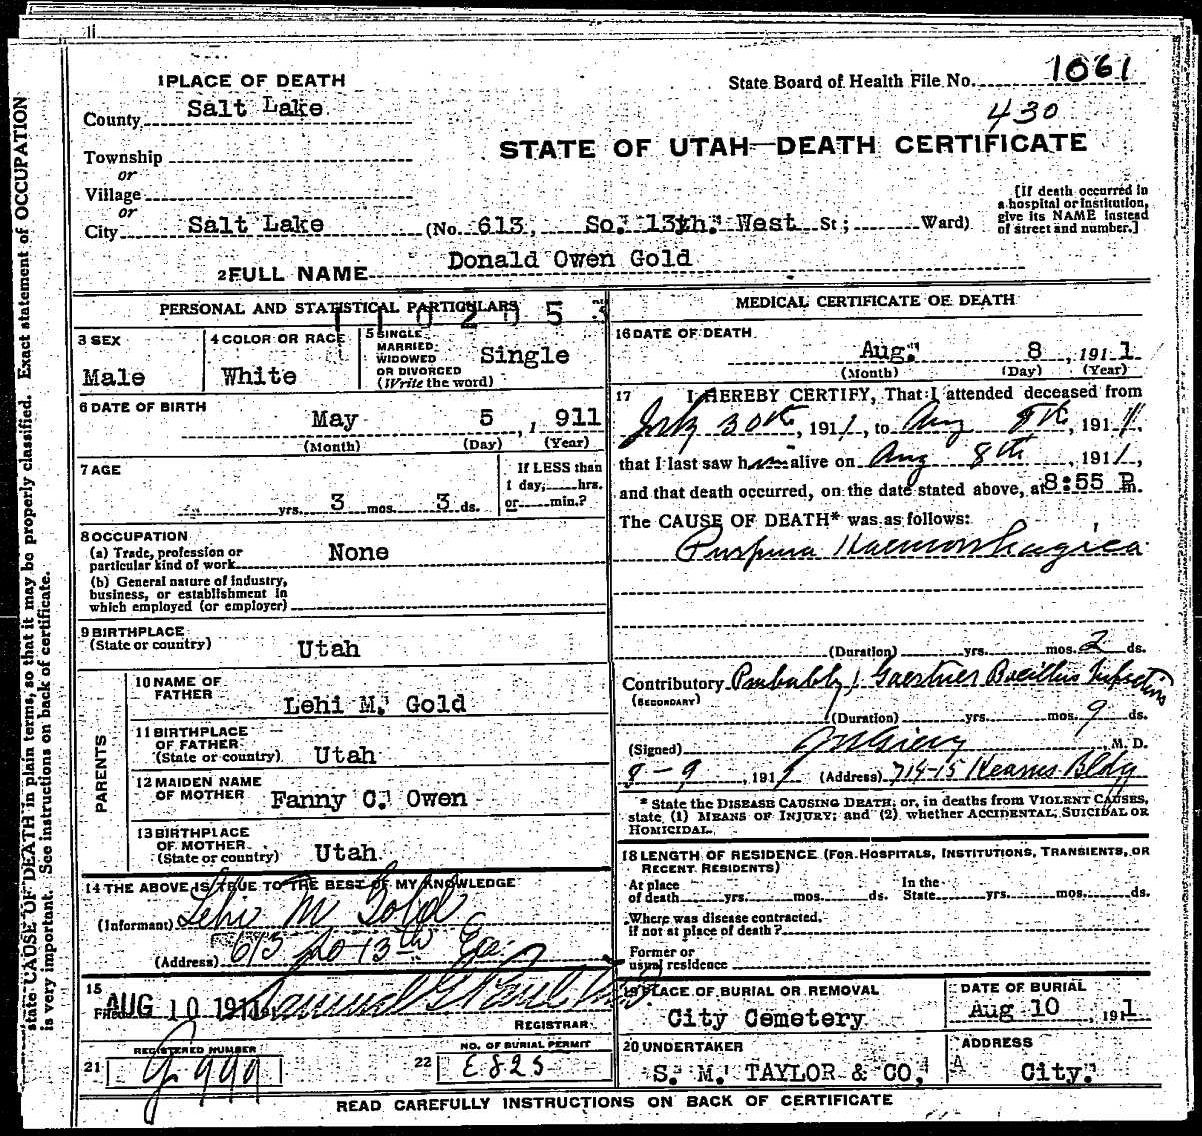 1 PLACE OF DEATH
State Board of Health File No. 1061
County Salt Lake
430
STATE OF UTAH—DEATH CERTIFICATE
Township
or
Village
or
City Salt Lake (No. 613, So. 13th. West St; Ward)
[If death occurred in
a hospital or institution,
give its NAME instead
of street and number.]
2 FULL NAME Donald Owen Gold
PERSONAL AND STATISTICAL PARTICULARS
1102053
3 SEX
Male
4 COLOR OR RACE
White
5 SINGLE
MARRIED
WIDOWED
OR DIVORCED
(Write the word)
Single
6 DATE OF BIRTH
May 5, 1911
(Month) (Day) (Year)
7 AGE
yrs. 3 mos. 3 ds.
If LESS than
1 day, hrs.
or min.?
8 OCCUPATION
(a) Trade, profession or
particular kind of work None
(b) General nature of industry,
business, or establishment in
which employed (or employer)
9 BIRTHPLACE
(State or country)
Utah
PARENTS
10 NAME OF
FATHER
Lehi M. Gold
11 BIRTHPLACE
OF FATHER
(State or country) Utah
12 MAIDEN NAME
OF MOTHER Fanny C. Owen
13 BIRTHPLACE
OF MOTHER
(State or country) Utah
14 THE ABOVE IS TRUE TO THE BEST OF MY KNOWLEDGE
(Informant) Lehi M Gold
(Address) 613 So 13th
15
Filed AUG 10 1911 Samuel G Paul
REGISTRAR
21 REGISTERED NUMBER
G 999
22 NO. OF BURIAL PERMIT
E825
MEDICAL CERTIFICATE OF DEATH
16 DATE OF DEATH
Aug. 8, 1911
(Month) (Day) (Year)
17 I HEREBY CERTIFY, That I attended deceased from
July 30th, 1911, to Aug 8th, 1911,
that I last saw him alive on Aug 8th, 1911,
and that death occurred, on the date stated above, at 8:55 P m.
The CAUSE OF DEATH* was as follows:
Purpura Haemorrhagica
(Duration) yrs. mos. 2 ds.
Contributory Probably Gaertner Bacillus Infection
(SECONDARY)
(Duration) yrs. mos. 9 ds.
(Signed) M. D.
8-9, 191 (Address) 714-15 Kearns Bldg
* State the DISEASE CAUSING DEATH; or, in deaths from VIOLENT CAUSES,
state (1) MEANS OF INJURY; and (2) whether ACCIDENTAL, SUICIDAL OR
HOMICIDAL.
18 LENGTH OF RESIDENCE (FOR HOSPITALS, INSTITUTIONS, TRANSIENTS, OR
RECENT RESIDENTS)
At place
of death yrs. mos. ds.
In the
State yrs. mos. ds.
Where was disease contracted,
if not at place of death?
Former or
usual residence
19 PLACE OF BURIAL OR REMOVAL
City Cemetery
DATE OF BURIAL
Aug 10, 1911
20 UNDERTAKER
S. M. TAYLOR & CO.
ADDRESS
City.
READ CAREFULLY INSTRUCTIONS ON BACK OF CERTIFICATE
state CAUSE OF DEATH in plain terms, so that it may be properly classified. Exact statement of OCCUPATION
is very important. See instructions on back of certificate.